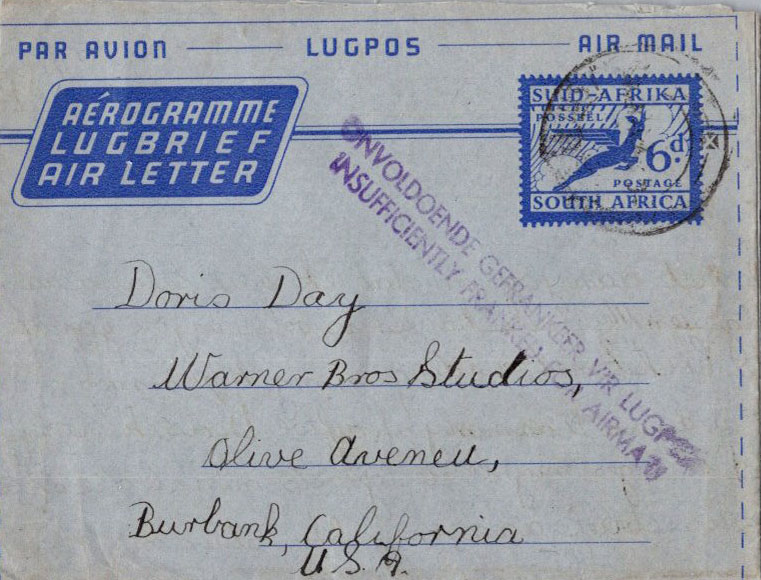 PAR AVION LUGPOS AIR MAIL
AÉROGRAMME
LUGBRIEF
AIR LETTER
SUID-AFRIKA
POSSEËL
6d.
POSTAGE
SOUTH AFRICA
ONVOLDOENDE GEFRANKEER VIR LUGPOS
INSUFFICIENTLY FRANKED FOR AIRMAIL
Doris Day
Warner Bros Studios,
Olive Aveneu,
Burbank, California
U.S.A.